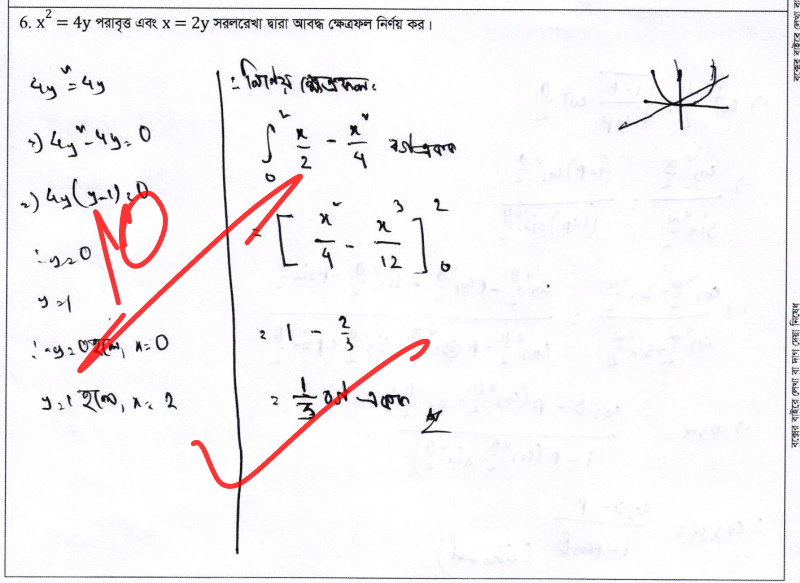 6. x² = 4y পরাবৃত্ত এবং x = 2y সরলরেখা দ্বারা আবদ্ধ ক্ষেত্রফল নির্ণয় কর।
4y² = 4y
⇒) 4y² - 4y = 0
⇒) 4y(y-1) = 0
∴ y = 0
y = 1
∴ y = 0 হলে, x = 0
y = 1 হলে, x = 2
10
∴ নির্ণেয় ক্ষেত্রফল:
∫₀² x/2 - x²/4 বর্গ একক
= [x²/4 - x³/12]₀²
= 1 - 2/3
= 1/3 বর্গ একক
বক্সের বাইরে লেখা বা দাগ দেয়া নিষেধ